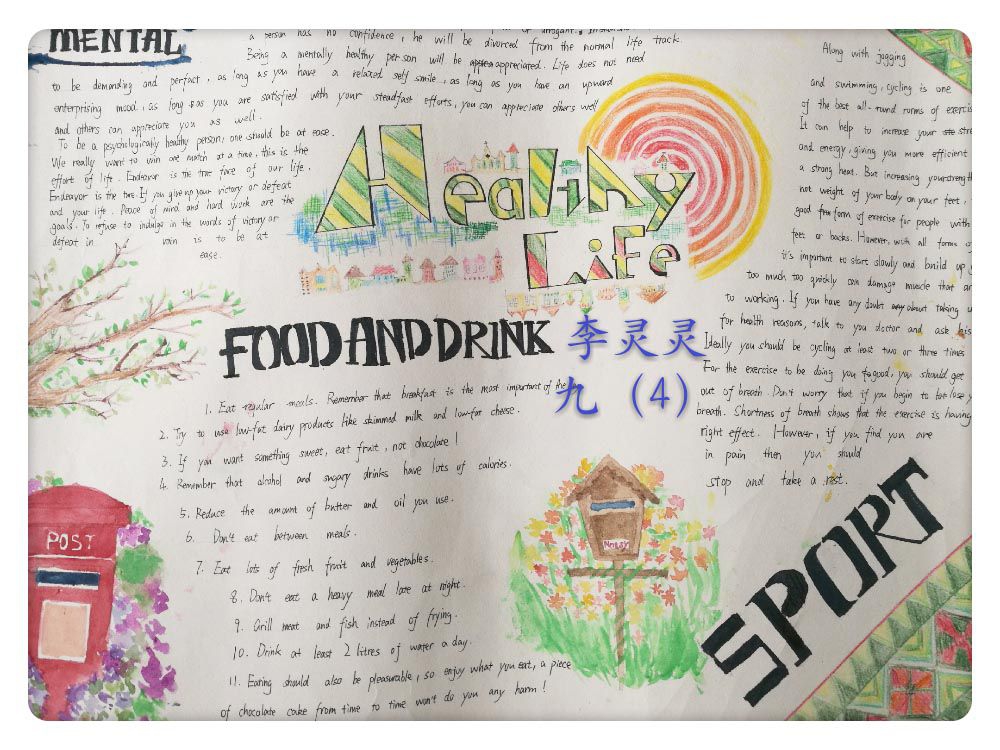 MENTAL
a person has no confidence, he will be divorced from the normal life track.
Being a mentally healthy person will be appreciated. Life does not need
to be demanding and perfact, as long as you have a relaxed self smile, as long as you have an upward
enterprising mood, as long as you are satisfied with your steadfast efforts, you can appreciate others well
and others can appreciate you as well.
To be a psychologically healthy person, one should be at ease.
We really want to win one match at a time, this is the
effort of life. Endeavor is the true face of our life.
Endeavor is the tore. If you give up your victory or defeat
and your life. Peace of mind and hard work are the
goals. To refuse to indulge in the words of victory or
defeat in vain is to be at
ease.
Healthy
Life
FOOD AND DRINK
李灵灵
九（4）
1. Eat regular meals. Remember that breakfast is the most important of the
2. Try to use low-fat dairy products like skimmed milk and low-fat cheese.
3. If you want something sweet, eat fruit, not chocolate!
4. Remember that alcohol and sugary drinks have lots of calories.
5. Reduce the amount of butter and oil you use.
6. Don't eat between meals.
7. Eat lots of fresh fruit and vegetables.
8. Don't eat a heavy meal late at night.
9. Grill meat and fish instead of frying.
10. Drink at least 2 litres of water a day.
11. Earing should also be pleasurable, so enjoy what you eat, a piece
of chocolate cake from time to time won't do you any harm!
POST
Along with jogging
and swimming, cycling is one
of the best all-round rorms of exercis
It can help to increase your stre
and energy, giving you more efficient
a strong heat. But increasing your strength
not weight of your body on your feet,
good form of exercise for people with
feet or backs. However, with all forms o
it's important to start slowly and build up
too much too quickly can damage muscle that ar
to working. If you have any doubt about taking u
for health reasons, talk to you doctor and ask his
Ideally you should be cycling at least two or three times
For the exercise to be doing you good, you should get
out of breath. Don't worry that if you begin to lose y
breath. Shortness of breath shows that the exercise is having
right effect. However, if you find you are
in pain then you should
stop and take a rest.
SPORT